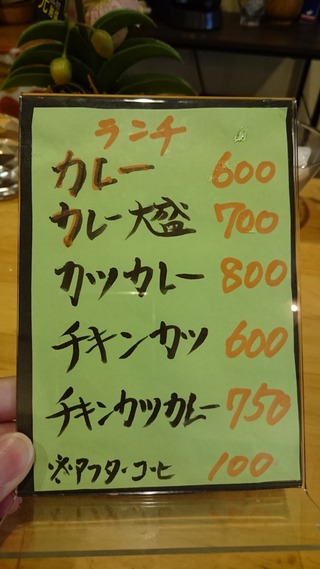 ランチ
カレー 600
カレー大盛 700
カツカレー 800
チキンカツ 600
チキンカツカレー 750
※アフターコーヒ 100